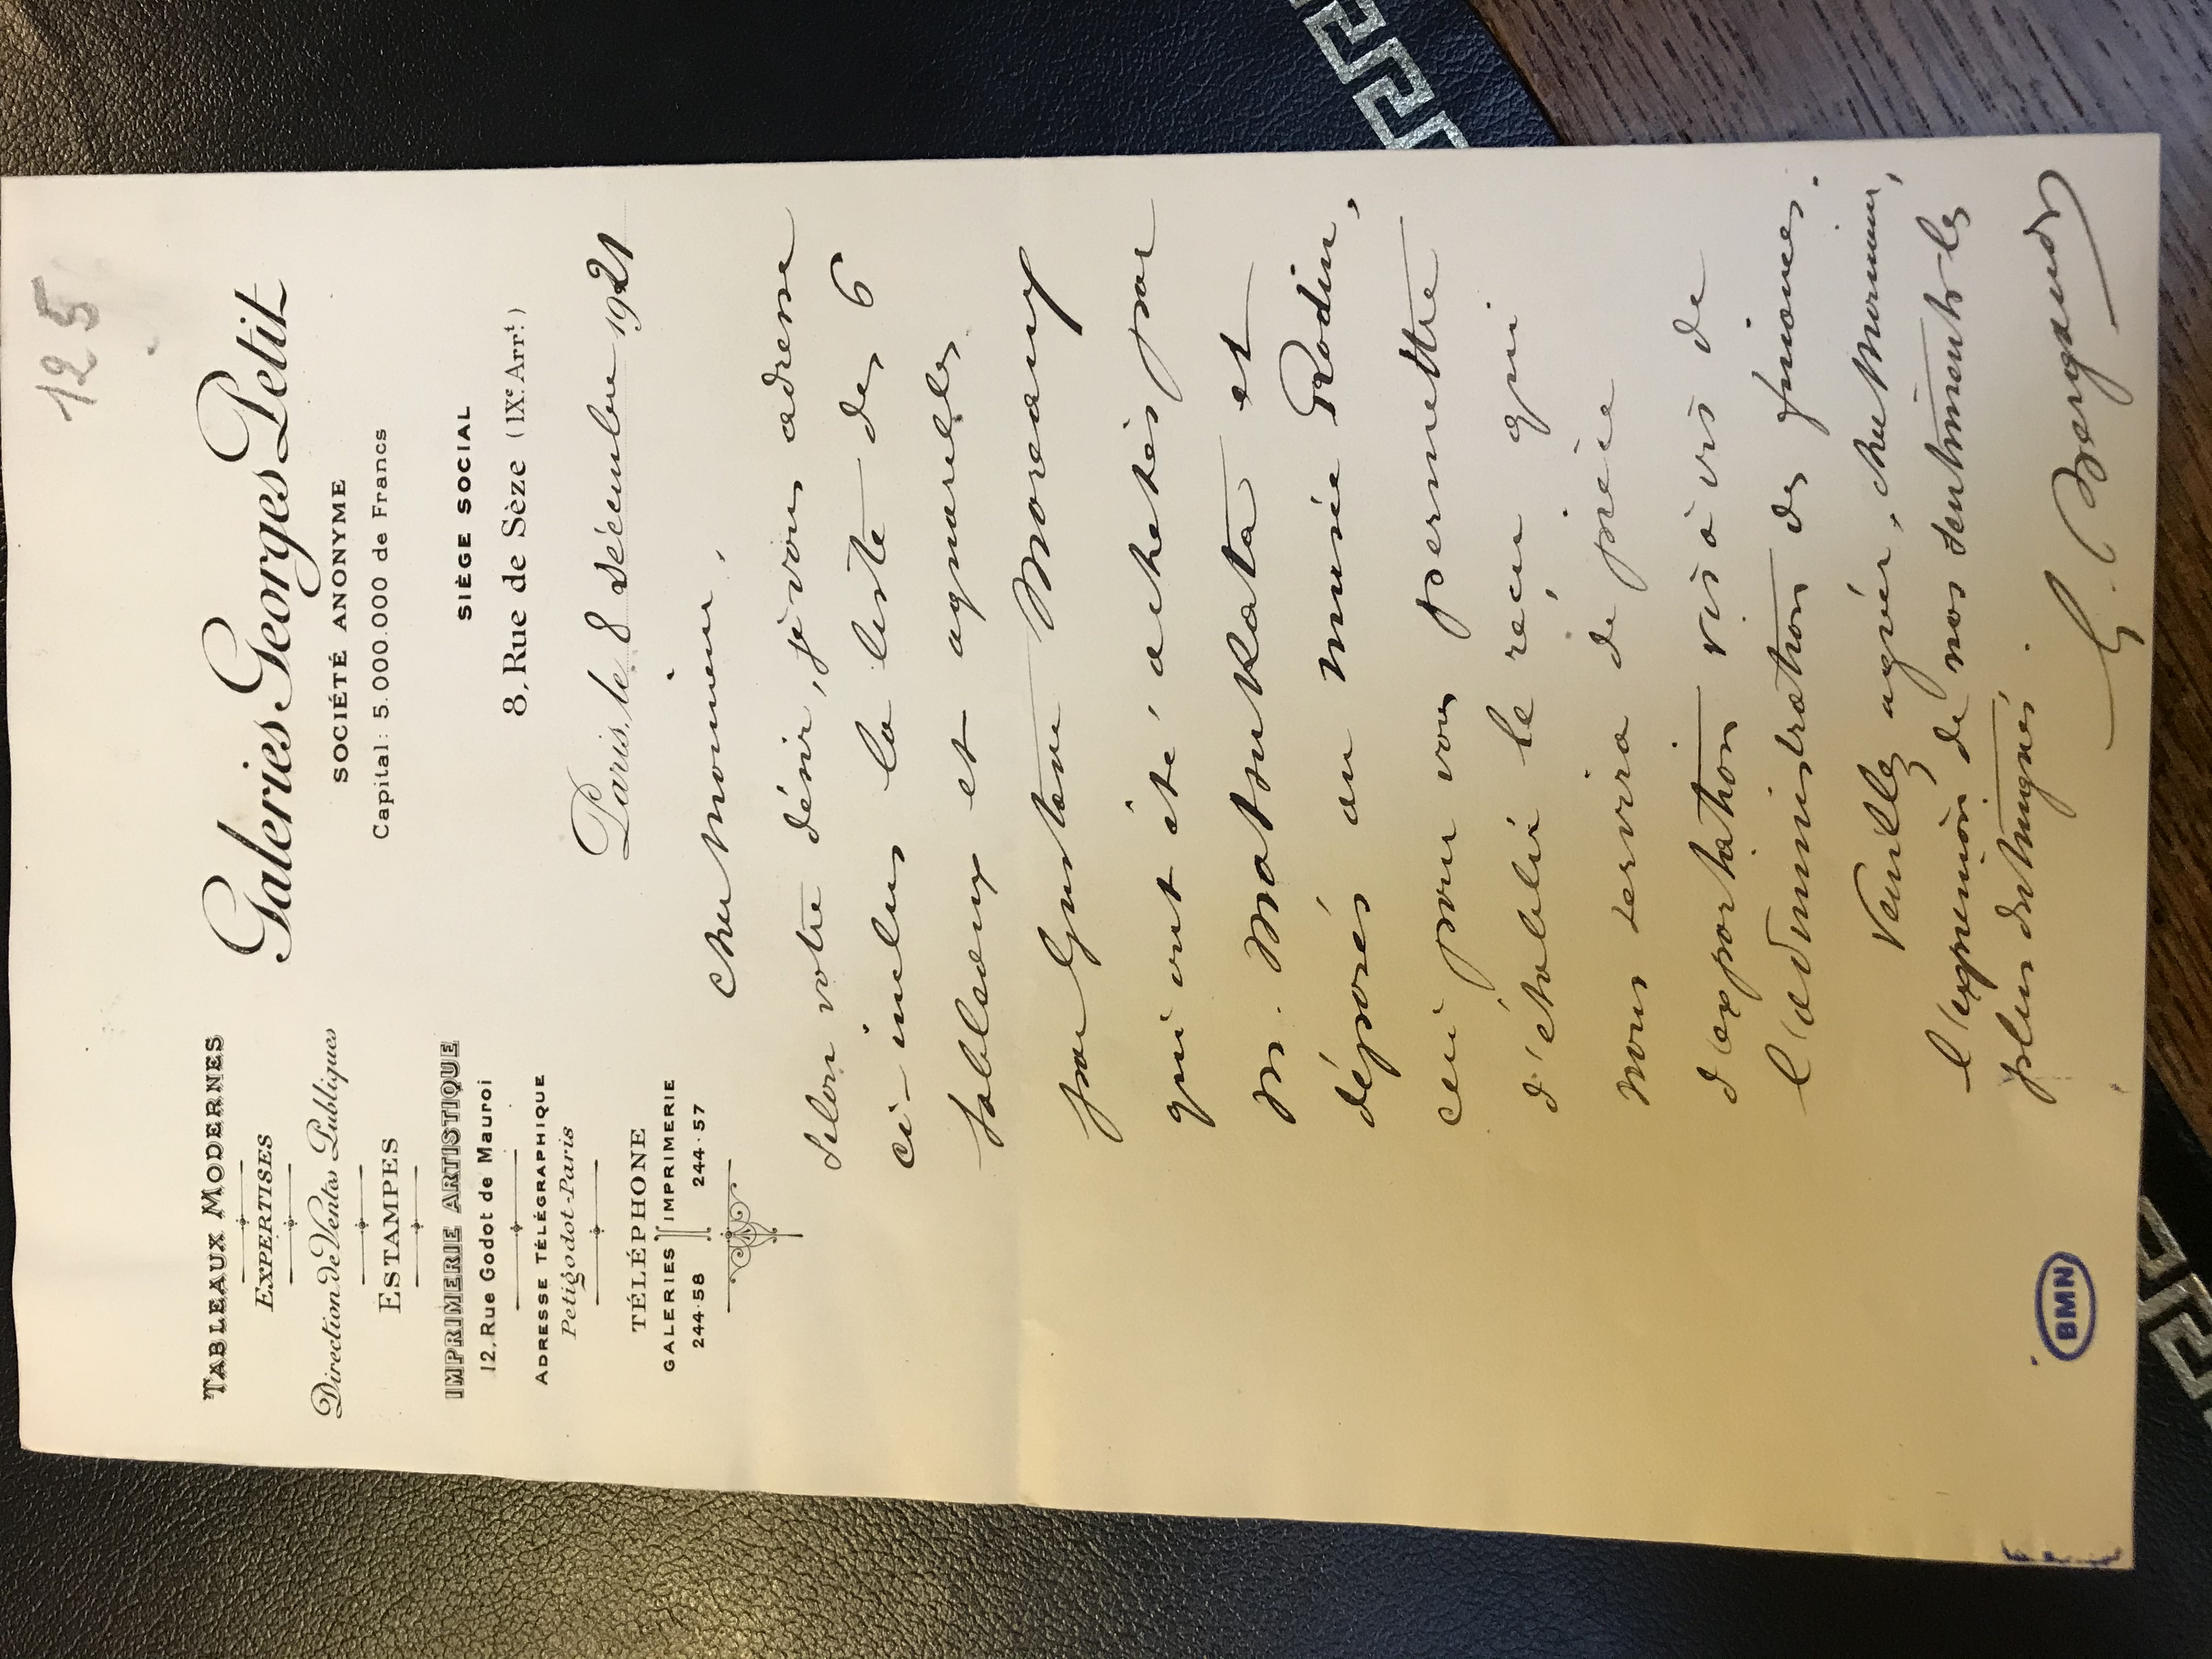 125
TABLEAUX MODERNES
EXPERTISES
Direction de Ventes Publiques
ESTAMPES
IMPRIMERIE ARTISTIQUE
12, Rue Godot de Mauroi
ADRESSE TÉLÉGRAPHIQUE
Petigodot-Paris
TÉLÉPHONE
GALERIES IMPRIMERIE
244·58 244·57
Galeries Georges Petit
SOCIÉTÉ ANONYME
Capital: 5.000.000 de Francs
SIÈGE SOCIAL
8, Rue de Sèze (IXe Arrt)
Paris, le 8 décembre 1921
Cher Monsieur,
Selon votre désir, je vous adresse
ci-inclus la liste des 6
tableaux et aquarelles
par Gustave Moreau
qui ont été achetés par
M. Matsukata et
déposés au musée Rodin,
ceci pour vous permettre
d'établir le reçu qui
nous servira de pièce
d'exportation vis à vis de
l'administration des finances.
Veuillez agréer, cher Monsieur,
l'expression de nos sentiments les
plus distingués.
BMN